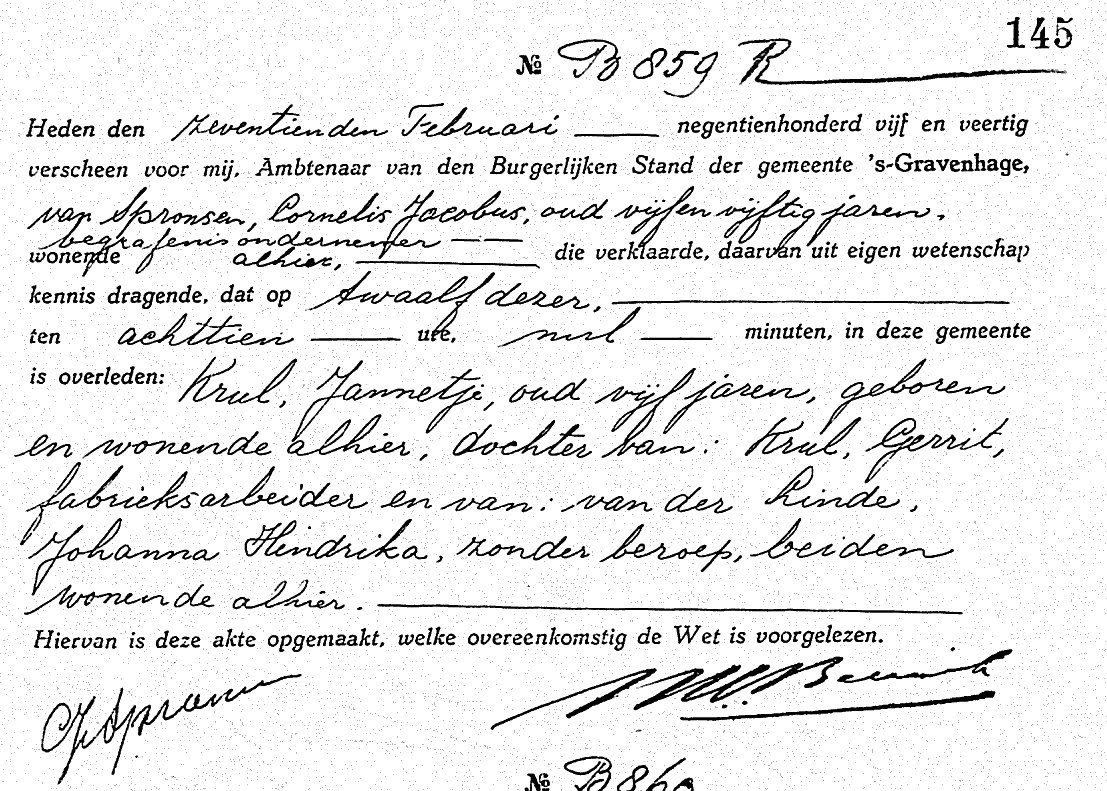 145
№ B 859 R
Heden den zeventienden Februari negentienhonderd vijf en veertig
verscheen voor mij, Ambtenaar van den Burgerlijken Stand der gemeente 's-Gravenhage,
van Spronsen, Cornelis Jacobus, oud vijfenvijftig jaren,
begrafenisondernemer
wonende alhier, die verklaarde, daarvan uit eigen wetenschap
kennis dragende, dat op twaalf dezer,
ten achttien ure, nul minuten, in deze gemeente
is overleden: Krul, Jannetje, oud vijf jaren, geboren
en wonende alhier, dochter van: Krul, Gerrit,
fabrieksarbeider en van: van der Linde,
Johanna Hendrika, zonder beroep, beiden
wonende alhier.
Hiervan is deze akte opgemaakt, welke overeenkomstig de Wet is voorgelezen.
CJvSpronsen
№ B 860